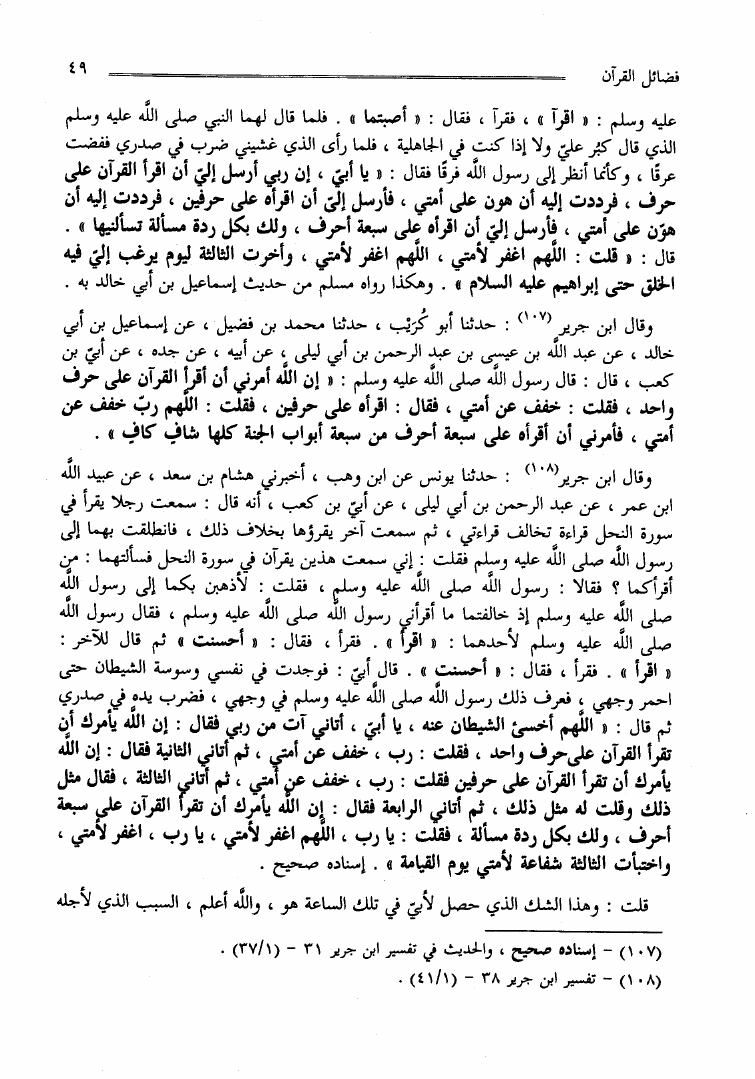 فضائل القرآن ٤٩
عليه وسلم : « اقرآ » ، فقرآ ، فقال : « أصبتما » . فلما قال لهما النبي صلى اللَّه عليه وسلم
الذي قال كبُر عليّ ولا إذا كنت في الجاهلية ، فلما رأى الذي غشيني ضرب في صدري ففضت
عرقًا ، وكأنما أنظر إلى رسول اللَّه فرقًا فقال : « يا أبيّ ، إن ربي أرسل إليّ أن اقرأ القرآن على
حرف ، فرددت إليه أن هون على أمتي ، فأرسل إليّ أن اقرأه على حرفين ، فرددت إليه أن
هوّن على أمتي ، فأرسل إليّ أن اقرأه على سبعة أحرف ، ولك بكل ردة مسألة تسألنيها » .
قال : « قلت : اللَّهم اغفر لأمتي ، اللَّهم اغفر لأمتي ، وأخرت الثالثة ليوم يرغب إليّ فيه
الخلق حتى إبراهيم عليه السلام » . وهكذا رواه مسلم من حديث إسماعيل بن أبي خالد به .
وقال ابن جرير (١٠٧) : حدثنا أبو كُرَيْب ، حدثنا محمد بن فضيل ، عن إسماعيل بن أبي
خالد ، عن عبد اللَّه بن عيسى بن عبد الرحمن بن أبي ليلى ، عن أبيه ، عن جده ، عن أبيّ بن
كعب ، قال : قال رسول اللَّه صلى اللَّه عليه وسلم : « إن اللَّه أمرني أن أقرأ القرآن على حرف
واحد ، فقلت : خفف عن أمتي ، فقال : اقرأه على حرفين ، فقلت : اللَّهم ربّ خفف عن
أمتي ، فأمرني أن أقرأه على سبعة أحرف من سبعة أبواب الجنة كلها شافٍ كافٍ » .
وقال ابن جرير(١٠٨) : حدثنا يونس عن ابن وهب ، أخبرني هشام بن سعد ، عن عبيد اللَّه
ابن عمر ، عن عبد الرحمن بن أبي ليلى ، عن أبيّ بن كعب ، أنه قال : سمعت رجلا يقرأ في
سورة النحل قراءة تخالف قراءتي ، ثم سمعت آخر يقرؤها بخلاف ذلك ، فانطلقت بهما إلى
رسول اللَّه صلى اللَّه عليه وسلم فقلت : إني سمعت هذين يقرآن في سورة النحل فسألتهما : من
أقرأكما ؟ فقالا : رسول اللَّه صلى اللَّه عليه وسلم ، فقلت : لأذهبن بكما إلى رسول اللَّه
صلى اللَّه عليه وسلم إذ خالفتما ما أقرأني رسول اللَّه صلى اللَّه عليه وسلم ، فقال رسول اللَّه
صلى اللَّه عليه وسلم لأحدهما : « اقرأ » . فقرأ ، فقال : « أحسنت » ثم قال للآخر :
« اقرأ » . فقرأ ، فقال : « أحسنت » . قال أبيّ : فوجدت في نفسي وسوسة الشيطان حتى
احمر وجهي ، فعرف ذلك رسول اللَّه صلى اللَّه عليه وسلم في وجهي ، فضرب يده في صدري
ثم قال : « اللَّهم أخسئ الشيطان عنه ، يا أبيّ ، أتاني آت من ربي فقال : إن اللَّه يأمرك أن
تقرأ القرآن على حرف واحد ، فقلت : رب ، خفف عن أمتي ، ثم أتاني الثانية فقال : إن اللَّه
يأمرك أن تقرأ القرآن على حرفين فقلت : رب ، خفف عن أمتي ، ثم أتاني الثالثة ، فقال مثل
ذلك وقلت له مثل ذلك ، ثم أتاني الرابعة فقال : إن اللَّه يأمرك أن تقرأ القرآن على سبعة
أحرف ، ولك بكل ردة مسألة ، فقلت : يا رب ، اللَّهم اغفر لأمتي ، يا رب ، اغفر لأمتي ،
واختبأت الثالثة شفاعة لأمتي يوم القيامة » . إسناده صحيح .
قلت : وهذا الشك الذي حصل لأبيّ في تلك الساعة هو ، واللَّه أعلم ، السبب الذي لأجله
(١٠٧) - إسناده صحيح ، والحديث في تفسير ابن جرير ٣١ - (٣٧/١) .
(١٠٨) - تفسير ابن جرير ٣٨ - (٤١/١) .